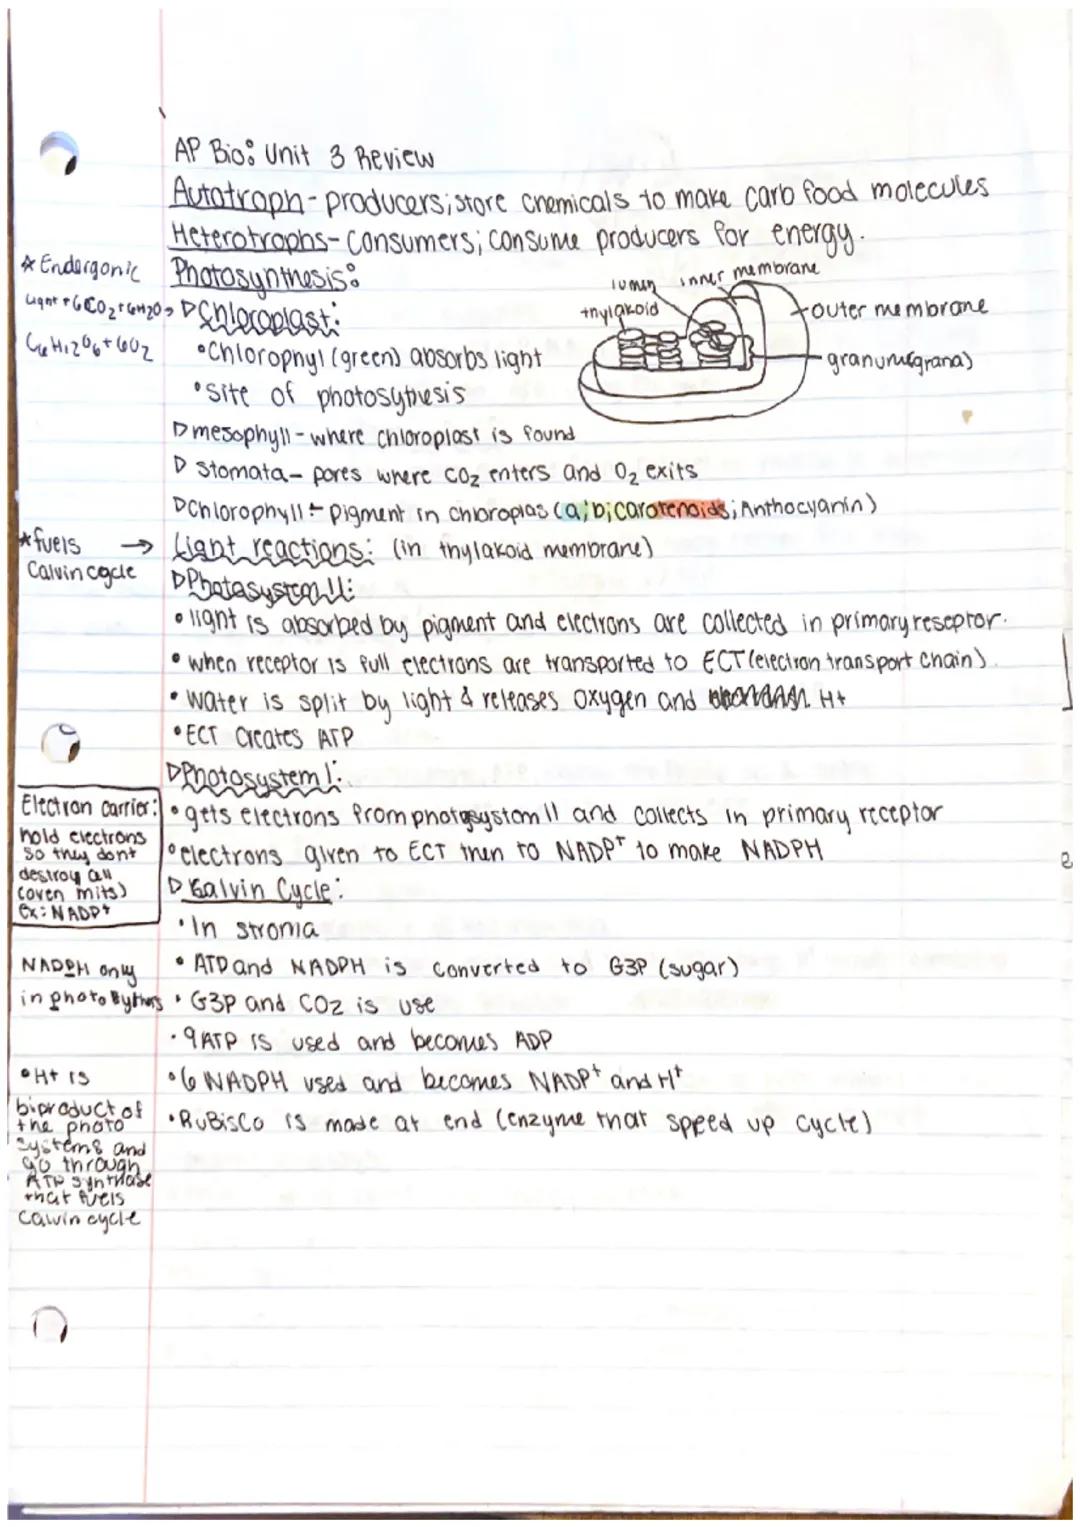 AP Bio: Unit 3 Review
Autotroph- producers; store chemicals to make carb food molecules
Heterotrophs- consumers; consume producers for energy.
* Endergonic
Photosynthesis:
Light + 6CO2 + 6H2O →
C6H12O6 + 6O2
lumen
inner membrane
thylakoid
outer membrane
granum(grana)
▷Chloroplast:
•Chlorophyl (green) absorbs light
•Site of photosythesis
▷mesophyll - where chloroplast is found
▷ Stomata- pores where CO2 enters and O2 exits
▷Chlorophyll - pigment in chloroplas (a; b; carotenoids; Anthocyanin)
*fuels → Light reactions: (in thylakoid membrane)
Calvin cycle
▷Photosystem II:
• light is absorbed by pigment and electrons are collected in primary reseptor.
• when receptor is full electrons are transported to ECT (electron transport chain)
• water is split by light & releases oxygen and H+
•ECT creates ATP
▷Photosystem I:
Electron carrier:
hold electrons
so they dont
destroy all
(oven mits)
ex: NADP+
• gets electrons from photosystom II and collects in primary receptor
•electrons given to ECT then to NADP+ to make NADPH
▷ Calvin Cycle:
•In stroma
NADPH only
in photo
• ATP and NADPH is converted to G3P (sugar)
• G3P and CO2 is use
• 9 ATP is used and becomes ADP
•6 NADPH used and becomes NADP+ and H+
•RuBisCo is made at end (enzyme that speed up cycle)
•H+ is
biproduct of
the photo
systems and
go through
ATP synthase
that fuels
Calvin cycle